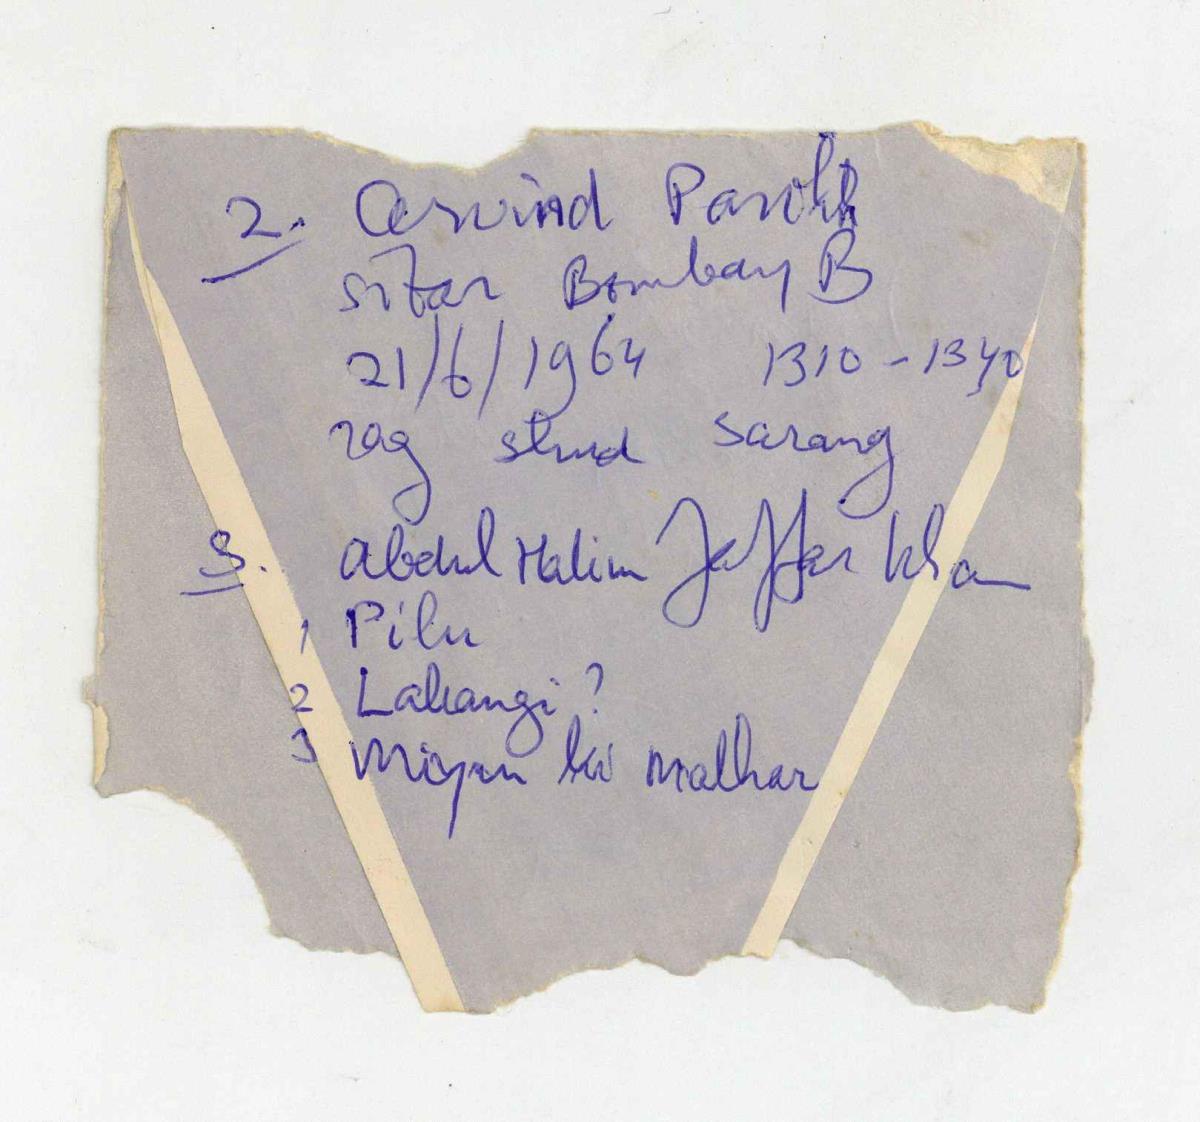 2. Arvind Parikh
sitar Bombay B
21/6/1964 1310 - 1340
rag shud sarang
3. Abdul Halim Jaffar Khan
1 Pilu
2 Lahangi?
3 Miyan ki malhar